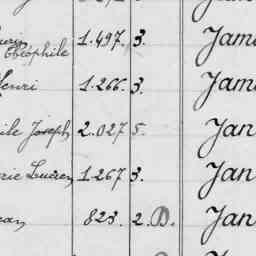 Théophile 1.497. 3. Jam
Henri 1.266. 3. Jam
ile Joseph 2.027 5. Jan
rie Lucien 1.267 3. Jan
ean 823. 2. D. Jan